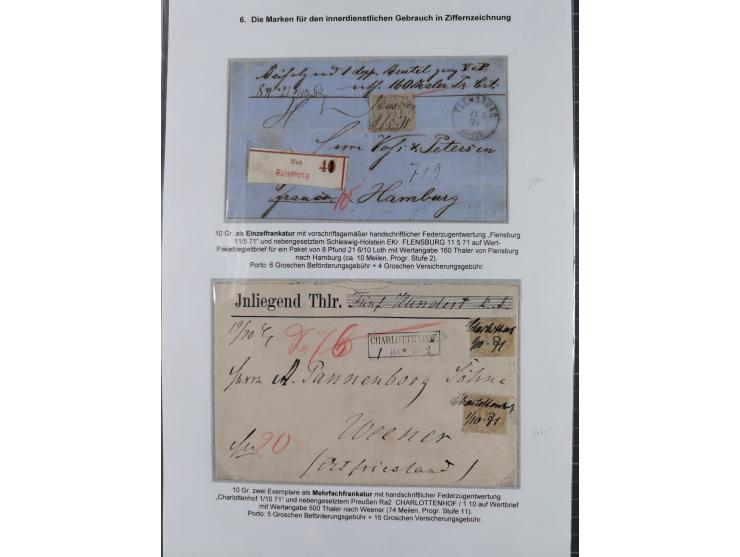 6. Die Marken für den innerdienstlichen Gebrauch in Ziffernzeichnung
160 Thaler
FLENSBURG
11 5
71
11/5 71
Herrn Voss & Petersen
719
Aus
Flensburg
40
franco
Hamburg
10 Gr. als Einzelfrankatur mit vorschriftsgemäßer handschriftlicher Federzugentwertung „Flensburg
11/5 71" und nebengesetztem Schleswig-Holstein EKr. FLENSBURG 11 5 71 auf Wert-
Paketbegleitbrief für ein Paket von 8 Pfund 21 6/10 Loth mit Wertangabe 160 Thaler von Flensburg
nach Hamburg (ca. 10 Meilen, Progr. Stufe 2).
Porto: 6 Groschen Beförderungsgebühr + 4 Groschen Versicherungsgebühr.
Jnliegend Thlr. Fünf Hundert
76
CHARLOTTENHOF
1 10
Charlottenhof
1/10 71
Herrn A. Pannenborg Söhne
Charlottenhof
1/10 71
20
Weener
(Ostfriesland)
10 Gr. zwei Exemplare als Mehrfachfrankatur mit handschriftlicher Federzugentwertung
„Charlottenhof 1/10 71" und nebengesetztem Preußen Ra2 CHARLOTTENHOF / 1 10 auf Wertbrief
mit Wertangabe 500 Thaler nach Weener (74 Meilen, Progr. Stufe 11).
Porto: 5 Groschen Beförderungsgebühr + 15 Groschen Versicherungsgebühr.